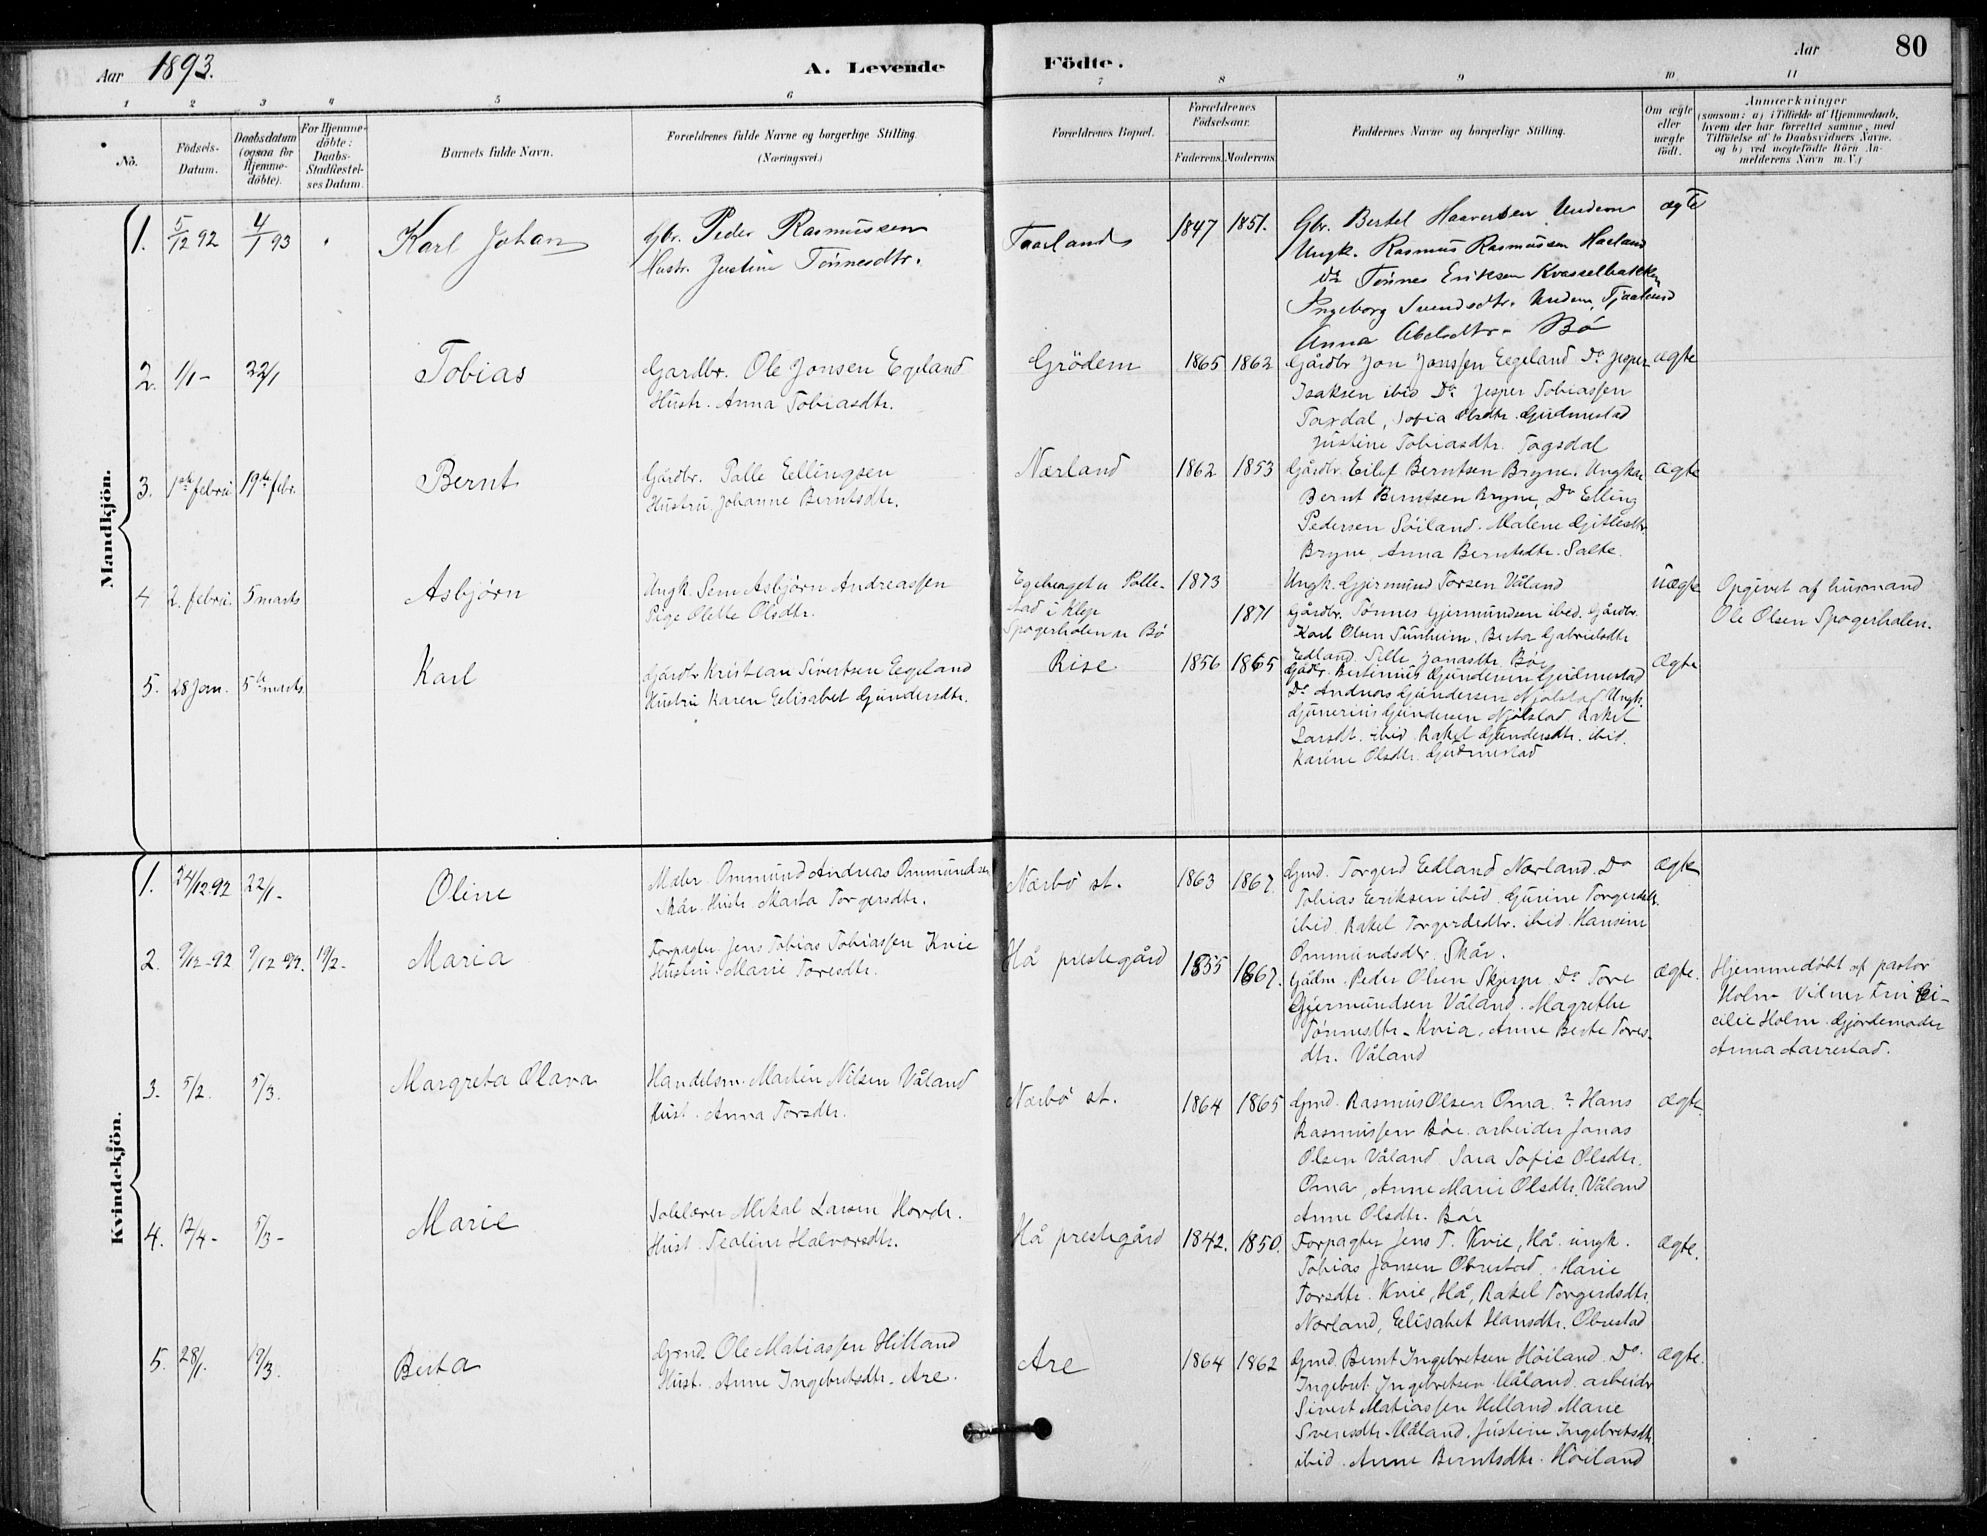 Aar 1893.
A. Levende Födte.
Aar 80
1 2 3 4 5 6 7 8 9 10 11
No.
Födsels-Datum.
Daabsdatum (ogsaa for Hjemme-döbte).
For Hjemme-döbte: Daabs-Stadfæstel-ses Datum.
Barnets fulde Navn.
Forældrenes fulde Navne og borgerlige Stilling.
(Næringsvei.)
Forældrenes Bopæl.
Forældrenes Födselsaar.
Faderens. Moderens.
Faddernes Navne og borgerlige Stilling.
Om ægte eller uægte födt.
Anmærkninger
(saasom: a) i Tilfælde af Hjemmedaab,
hvem der har forrettet samme, med
Tilföielse af to Daabsvidners Navne,
og b) ved uægtefödte Börn An-
melderens Navn m. V.)
Mandkjön.
1. 5/12 92 4/1 93 Karl Johan
Gbr. Peder Rasmussen
Hustr. Justine Tönnesdtr.
Taarland 1847 1851.
Gbr. Bertel Haaversen Undem
Ungk. Rasmus Rasmussen Haaland
Do Tönnes Eriksen Kvasselbakken
Ingeborg Svendsdtr. Undem, Tjaaland
Anna Abelsdtr. Bö
ægte
2. 1/1 - 22/1 Tobias
Gardbr. Ole Jonsen Egeland
Hustr. Anna Tobiasdtr.
Grödem 1865 1862
Gårdbr Jon Jonssen Eegeland Do Jesper
Isaksen ibid Do Jesper Tobiassen
Taxdal, Sofia Olsdtr. Gudmestad
Justine Tobiasdtr. Tagsdal
ægte
3. 1ste febru 19de febr. Bernt
Gårdbr. Palle Eellingsen
Hustru Johanne Berntsdtr.
Nærland 1862 1853
Gårdbr. Eilef Berntsen Bryne. Ungkar
Bernt Berntsen Bryne, Do Elling
Pedersen Söiland. Malene Gitlesdtr
Bryne, Anna Berntsdtr. Salte.
ægte
4 2. febru. 5 marts Asbjørn
Ungk. Sem Asbjørn Andreassen
Pige Olette Olsdtr.
Egeberget u Polle-
stad i Klep
Spogerholen u Bö
1873
1871
Ungk. Gjermund Torsen Våland
Gårdbr. Tønnes Gjermundsen ibid. Gårdbr.
Karl Olsen Tunheim. Berta Gabrielsdtr
Edland. Sille Jonasdtr. Böe
uægte
Opgivet af husmand
Ole Olsen Spogerholen.
5. 28 Jan. 5te marts Karl
Gårdbr Kristian Sivertsen Eegeland
Hustru Karen Eelisabet Gundersdtr.
Rise 1856 1865
Gårdbr. Bertinius Gundersen Gudmestad
Do Andreas Gundersen Njølstad Ungk.
Gunerius Gundersen Njølstad, Rakel
Larsdtr. ibid. Rakel Gundersdtr. ibid.
Karine Olsdtr. Gudmestad
Ægte
Kvindekjön.
1. 24/12 92 22/1 - Oline
Maler Ommund Andreas Ommundsen
Skår. Hustr. Marta Torgersdtr.
Nærbö st. 1863 1867
Gmd. Torgerd Eedland Nærland. Do
Tobias Eeriksen ibid. Gurine Torgersdtr.
ibid. Rakel Torgerdsdtr. ibid. Hansine
Ommundsdtr. Skår.
Ægte
2. 9/12-92 9/12 92. 19/2- Maria
Forpagter Jens Tobias Tobiassen Kvie
Hustru Marie Toresdtr.
Hå prestegård 1855 1867.
Gådm. Peder Olsen Skjerpe Do Tore
Gjermundsen Våland. Magrethe
Tönnesdtr - Kvia. Anne Berte Tores-
dtr. Våland
Ægte.
Hjemmedöbt af pastor
Holm Vidner Fru Ce-
cilie Holm. Gjordemoder
Anna Aarrestad.
3. 5/2. 5/3. Margreta Olava
Handelsm. Martin Nilsen Våland
Hust. Anna Torsdtr.
Nærbö st. 1864 1865
Gmd. Rasmus Olsen Oma. Hans
Rasmussen Böe. arbeider Jonas
Olsen Våland Sara Sofie Olsdtr.
Oma, Anne Marie Olsdtr. Våland
Anne Olsdtr. Böe
Ægte.
4. 12/4- 5/3- Marie
Mikal Larsen Hovda.
Hust. Tealine Halvorsdtr.
Hå prestegård 1842. 1850.
Forpagter Jens T. Kvie, Hå. ungk.
Tobias Jansen Obrestad. Marie
Torsdtr. Kvie, Hå, Rakel Torgerdsdtr.
Nærland, Eelisabet Hansdtr. Obrestad
Ægte.
5. 28/1. 19/3. Berta
Grnd. Ole Matiassen Hilland
Hust. Anne Ingebretsdtr. Are.
Are 1864 1862
Gmd. Bernt Ingebretsen Höiland. Do.
Ingebret Ingebretsen Våland. arbeider
Sivert Matiassen Helland Marie
Svensdtr Våland. Justine Ingebretsdtr.
ibid. Anne Berntsdtr. Höiland
Ægte.